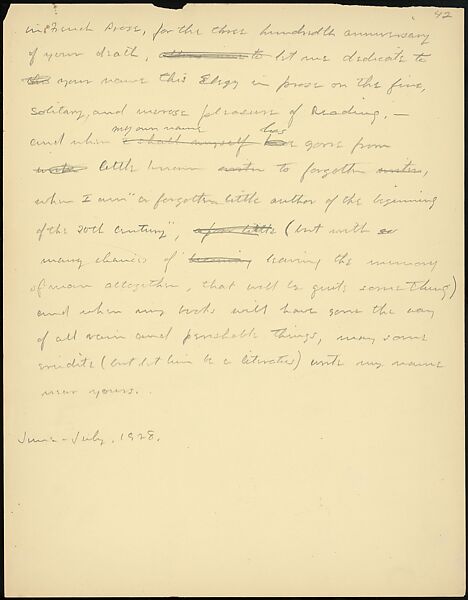 42
in French Prose, for the three hundredth anniversary
of your death, let me dedicate to
your name this Elegy in prose on the fine,
solitary, and morose pleasure of Reading. —
my own name has
and when I shall myself gone from
little known to forgotten
when I am "a forgotten little author of the beginning
of the 20th century", a poor little (but with
many chances of leaving the memory
of man altogether, that will be quite something)
and when my books will have gone the way
of all vain and perishable things, may some
erudite (but let him be a literatus) write my name
near yours.
June - July, 1928.